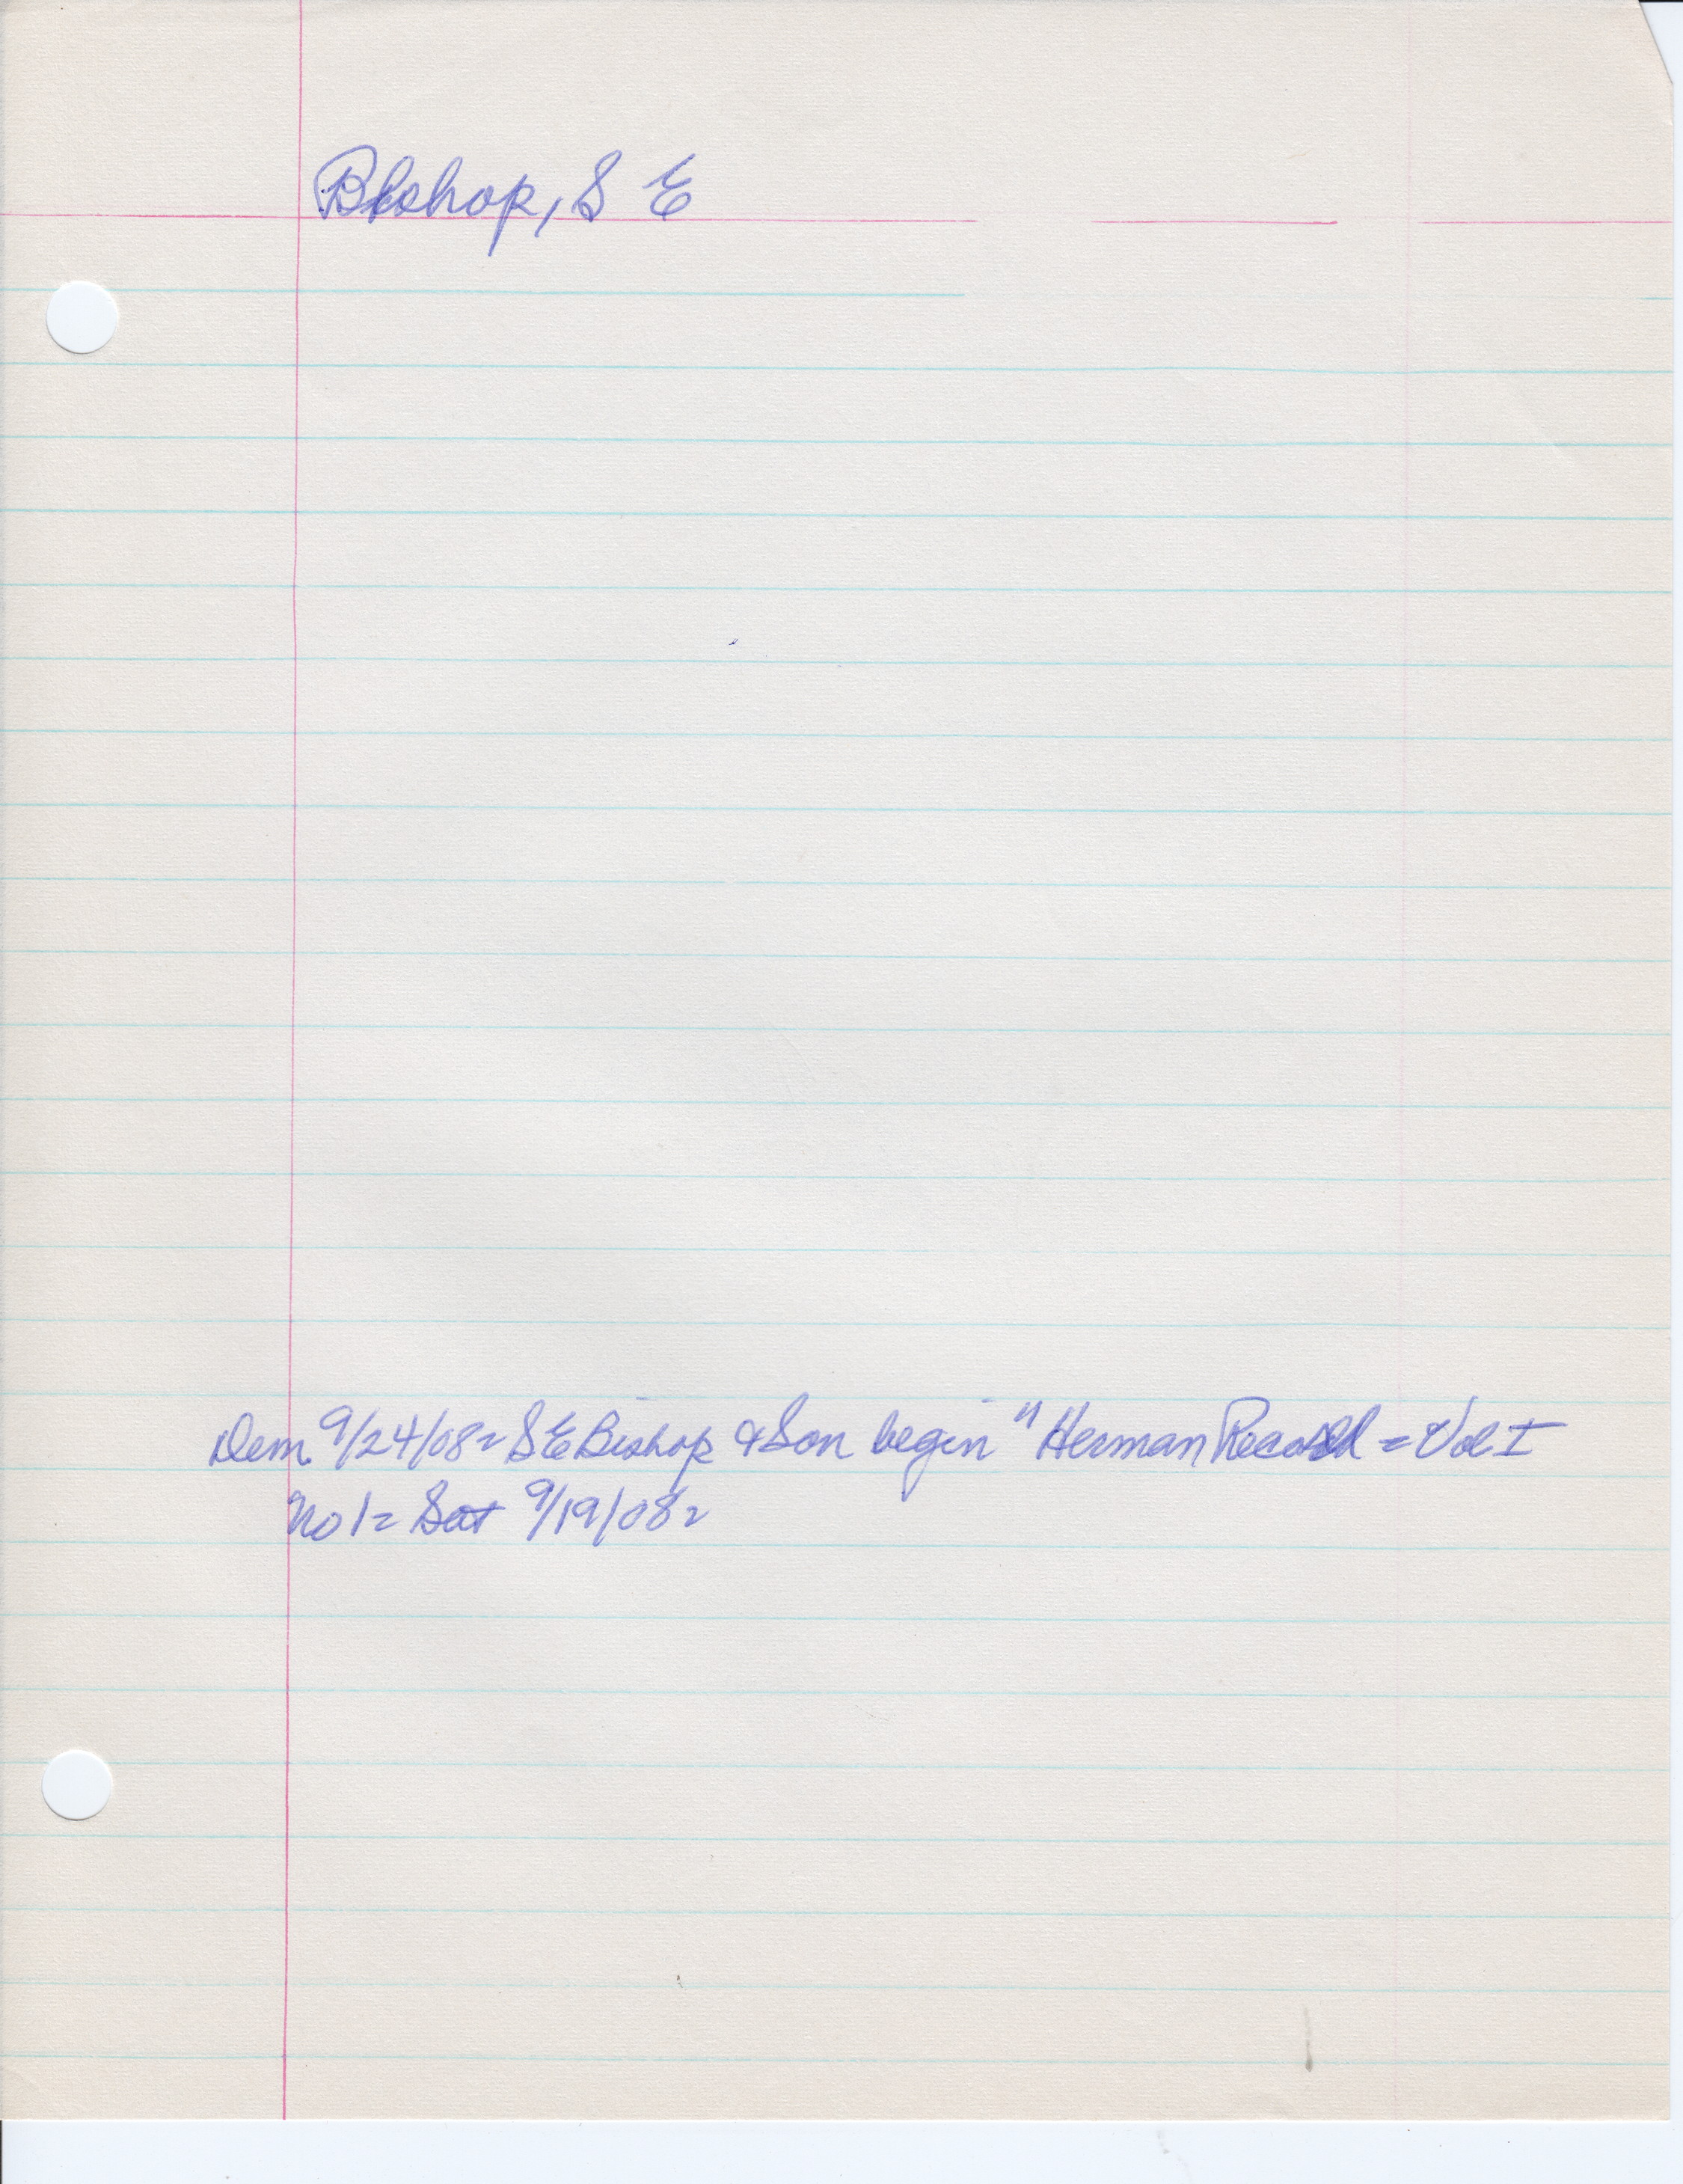 Bishop, S E
Dem. 9/24/08 = S E Bishop & Son begin "Herman Record = Vol I
No 1 = Sat 9/19/08 =